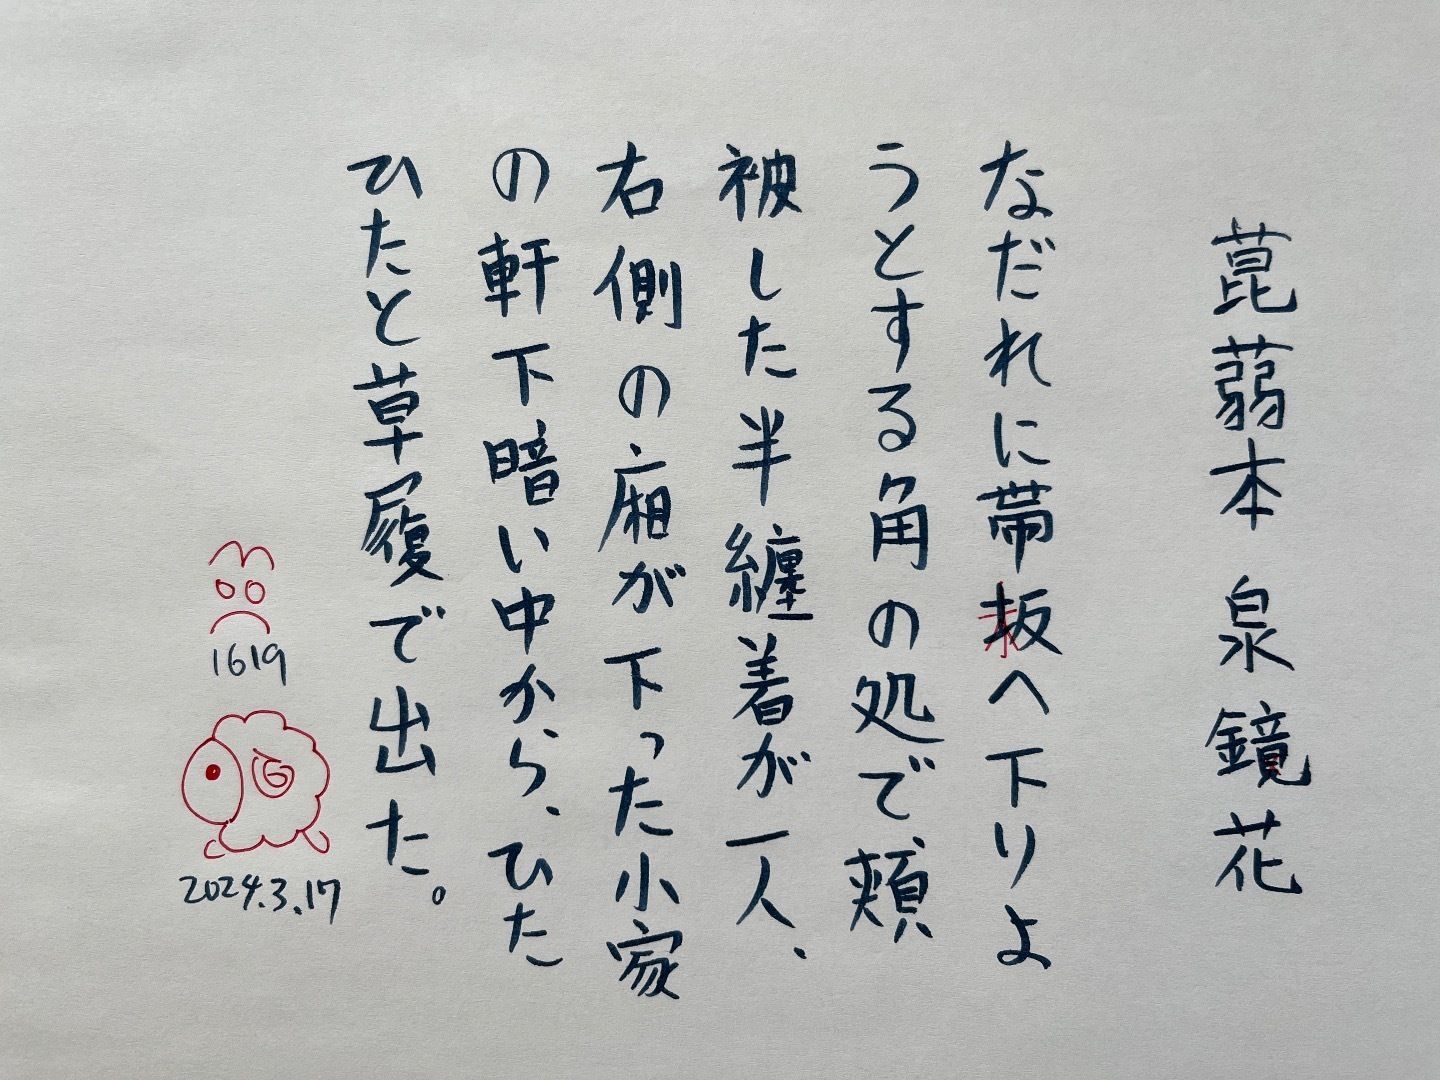 菎蒻本 泉鏡花
なだれに帯板へ下りよ
うとする角の処で、頬
被した半纏着が一人、
右側の廂が下った小家
の軒下暗い中から、ひた
ひたと草履で出た。
1619
2024.3.17